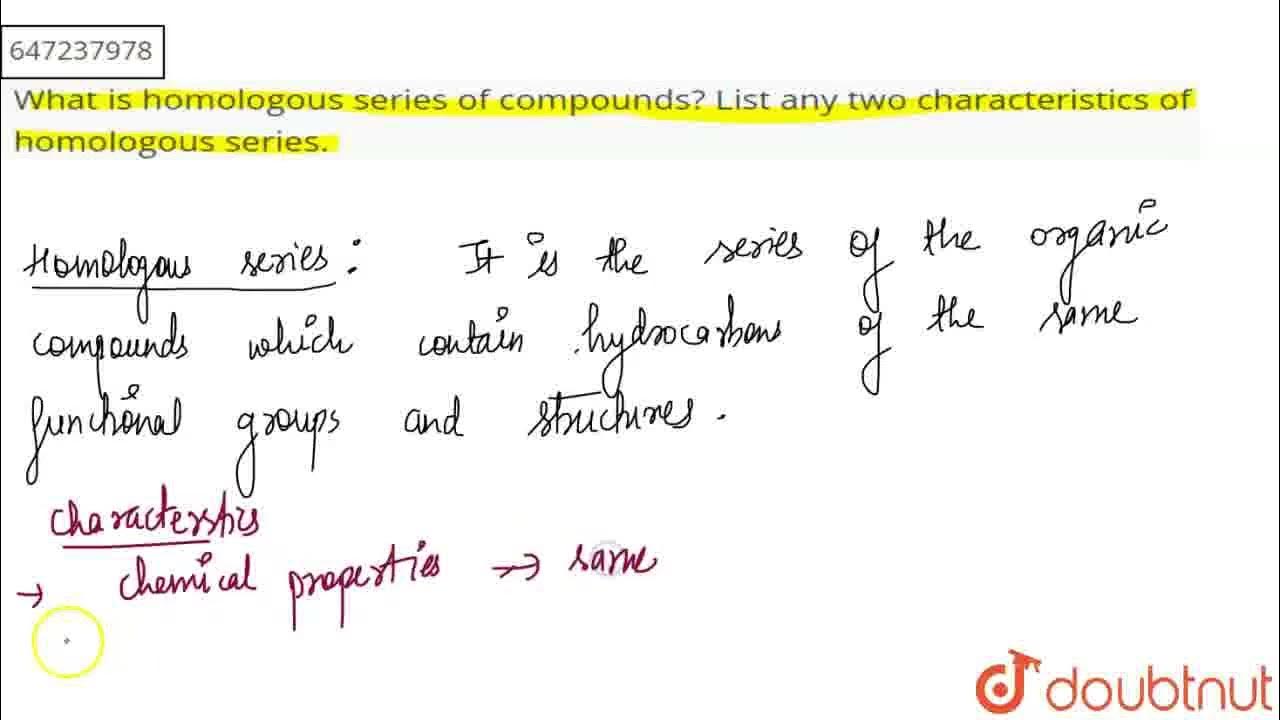 647237978
What is homologous series of compounds? List any two characteristics of
homologous series.
Homologous series: It is the series of the organic
compounds which contain hydrocarbons of the same
functional groups and structures.
Characterstics
→ chemical properties → same
doubtnut